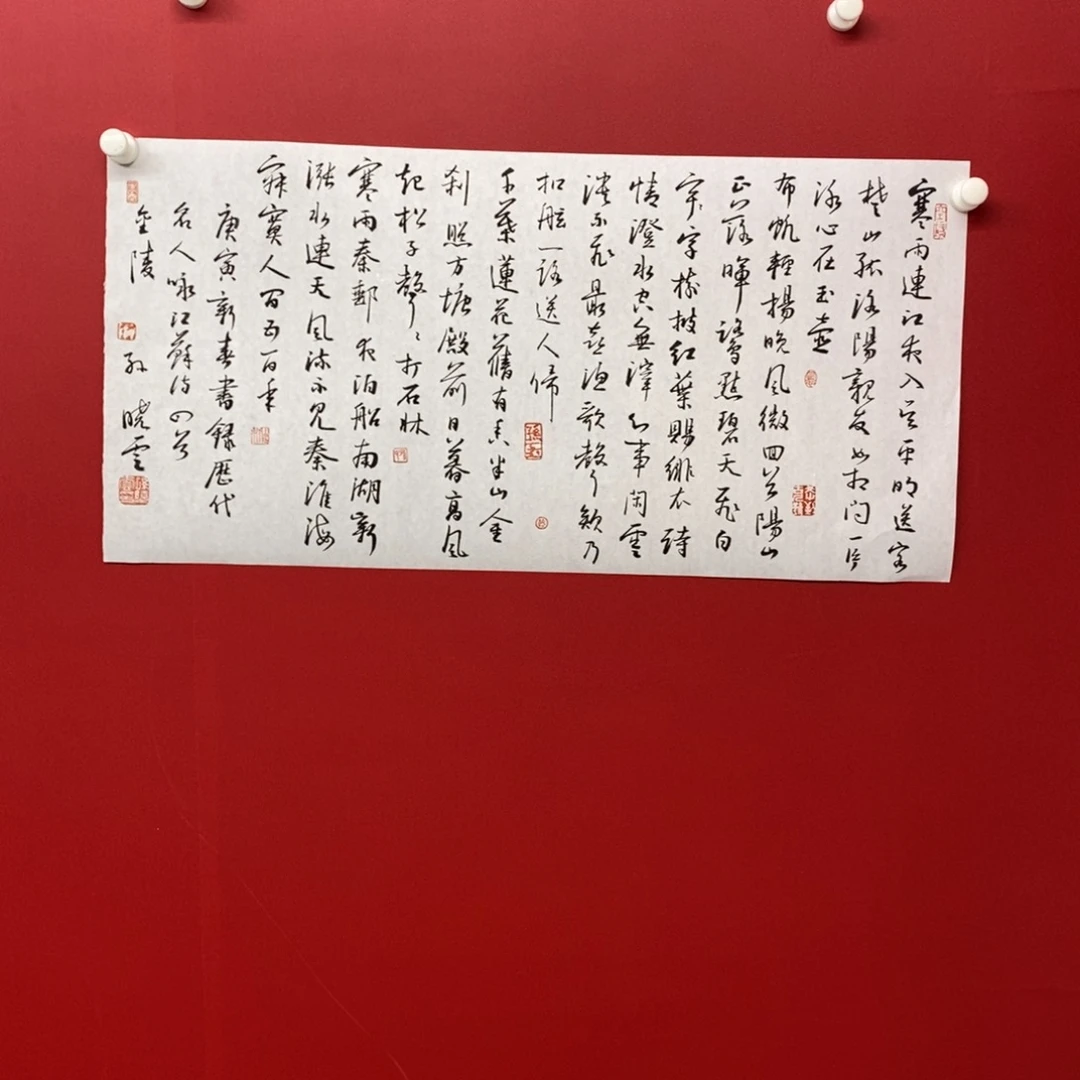 寒雨連江夜入吴平明送客
楚山孤洛陽親友如相问一片
冰心在玉壶
布帆輕揚晚风微回首陽山
正落暉鷺點碧天飛白
字字楓披红葉賜緋衣詩
情澄水空無滓心事闲雲
淡不飛最喜漁歌聲欸乃
扣舷一路送人歸
千葉蓮花舊有香半山金
刹照方塘殿前日暮高风
起松子聲〻打石牀
寒雨秦郵夜泊船南湖新
漲水連天风流不見秦淮海
寂寞人间五百年
庚寅新春書録歷代
名人咏江蘇诗四首
金陵
孙曉雲